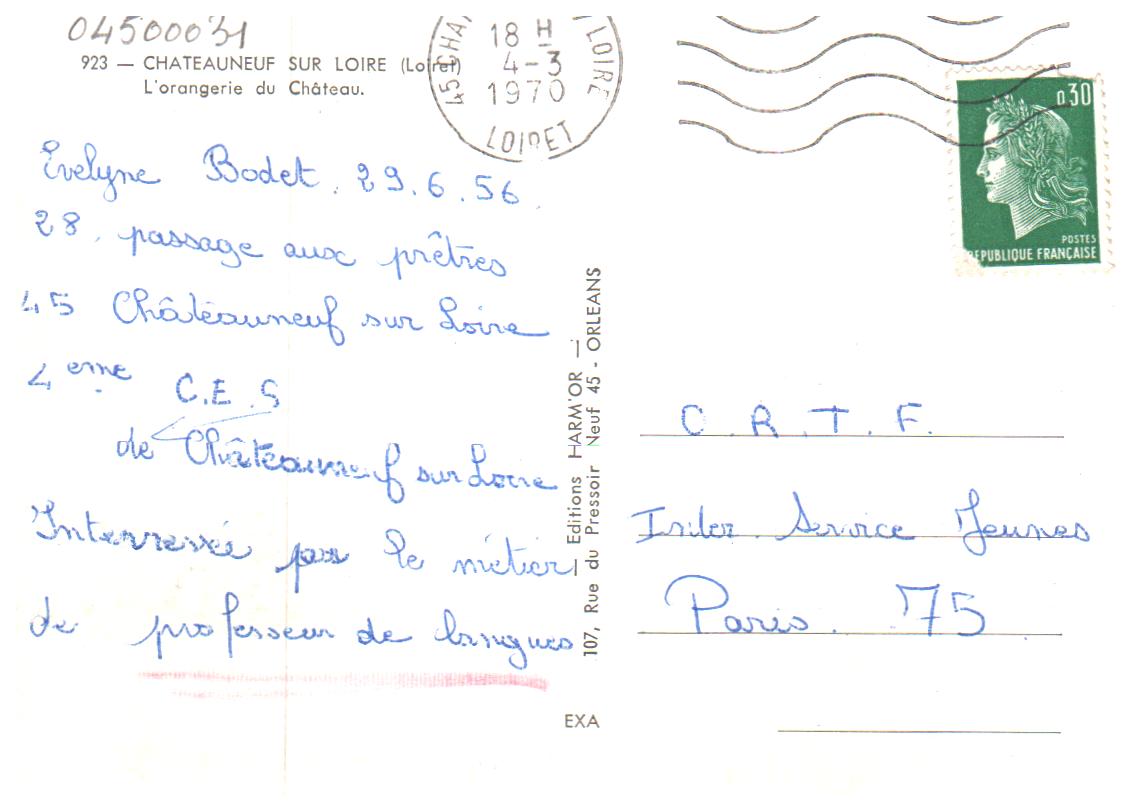 04500031
923 — CHATEAUNEUF SUR LOIRE (Loiret)
L'orangerie du Château.
45 CHA LOIRE
18 H
4-3
1970
LOIRET
0,30
POSTES
REPUBLIQUE FRANÇAISE
Evelyne Bodet. 29.6.56.
28, passage aux prêtres
45 Châteauneuf sur Loire
4eme C.E.S
de Châteauneuf sur Loire
Interressée par le métier
de professeur de langues
Editions HARM'OR —
107, Rue du Pressoir Neuf 45 - ORLEANS
EXA
O.R.T.F.
Inter. Service Jeunes
Paris. 75